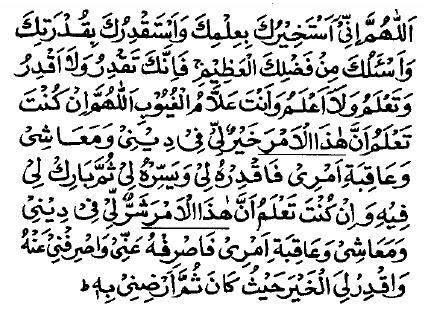 اَللّٰهُمَّ اِنِّیْ اَسْتَخِیْرُكَ بِعِلْمِكَ وَاَسْتَقْدِرُكَ بِقُدْرَتِكَ
وَاَسْئَلُكَ مِنْ فَضْلِكَ الْعَظِیْمِ ۚ فَاِنَّكَ تَقْدِرُ وَلَا اَقْدِرُ
وَتَعْلَمُ وَلَا اَعْلَمُ وَاَنْتَ عَلَّامُ الْغُیُوْبِ اَللّٰهُمَّ اِنْ كُنْتَ
تَعْلَمُ اَنَّ هٰذَا الْاَمْرَ خَیْرٌ لِّیْ فِیْ دِیْنِیْ وَمَعَاشِیْ
وَعَاقِبَةِ اَمْرِیْ فَاقْدِرْهُ لِیْ وَیَسِّرْهُ لِیْ ثُمَّ بَارِكْ لِیْ
فِیْهِ وَاِنْ كُنْتَ تَعْلَمُ اَنَّ هٰذَا الْاَمْرَ شَرٌّ لِّیْ فِیْ دِیْنِیْ
وَمَعَاشِیْ وَعَاقِبَةِ اَمْرِیْ فَاصْرِفْهُ عَنِّیْ وَاصْرِفْنِیْ عَنْهُ
وَاقْدِرْ لِیَ الْخَیْرَ حَیْثُ كَانَ ثُمَّ اَرْضِنِیْ بِهٖ ط